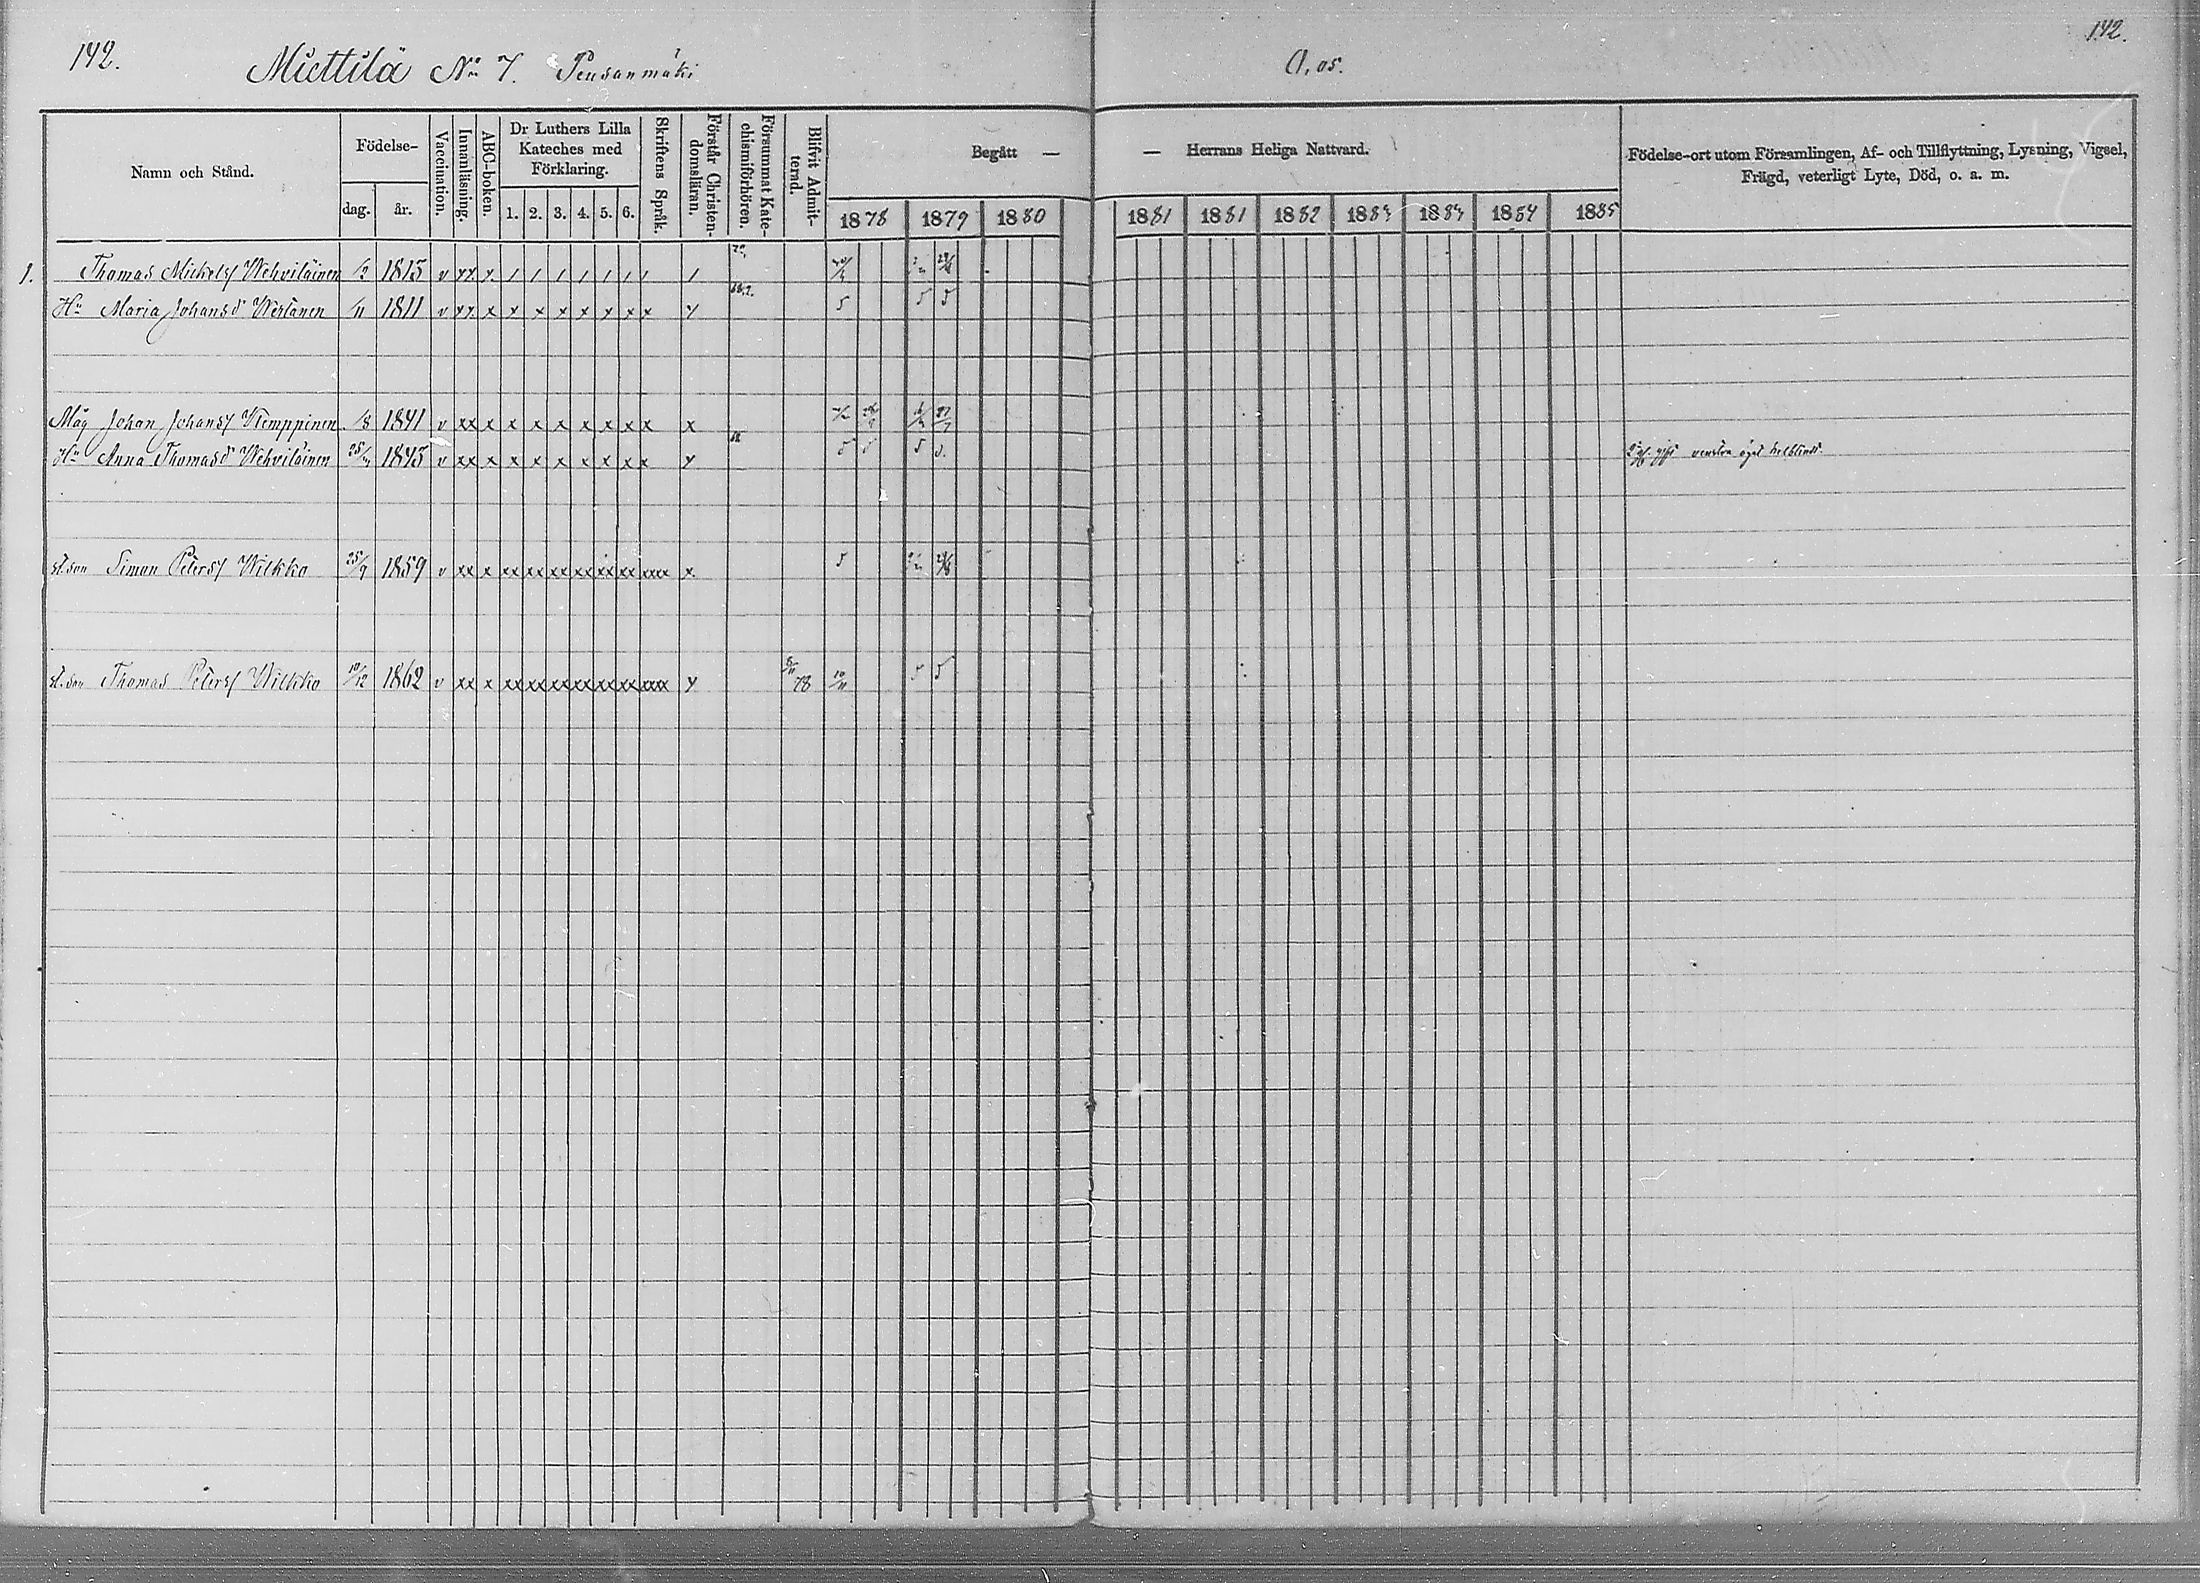 142.
Miettilä No 7. Pensanmäki
0,05.
142.
Namn och Stånd.
Födelse-
dag.
år.
Vaccination.
Innanläsning.
ABC-boken.
Dr Luthers Lilla
Kateches med
Förklaring.
1. 2. 3. 4. 5. 6.
Skriftens Språk.
Förstår Christen-
domsläran.
Försummat Kate-
chismiförhören.
Blifvit Admit-
terad.
Begått —
— Herrans Heliga Nattvard.
1878 1879 1880 1881 1881 1882 1883 1884 1885
Födelse-ort utom Församlingen, Af- och Tillflyttning, Lysning, Vigsel,
Frägd, veterligt Lyte, Död, o. a. m.
1. Thomas Mickelsf Wehviläinen 1815 v xx x / / / / / / / /
Hu Maria Johansd Westänen 1811 v xx x x x x x x x x x 5 5 5
Måg Johan Johansf Kemppinen 1/8 1841 v xx x x x x x x x x x
Hu Anna Thomasd Wehviläinen 1843 v xx x x x x x x x x x 5 5 5 5. 2 gift venstra ögat helblind.
st. son Simon Petersf Wilkko 25/9 1859 v xx x xx xx xx xx xx xx xxx x. 5
st. son Thomas Petersf Wilkko 10/12 1862 v xx x xx xx xx xx xx xx xxx x 78 10/11 5 5